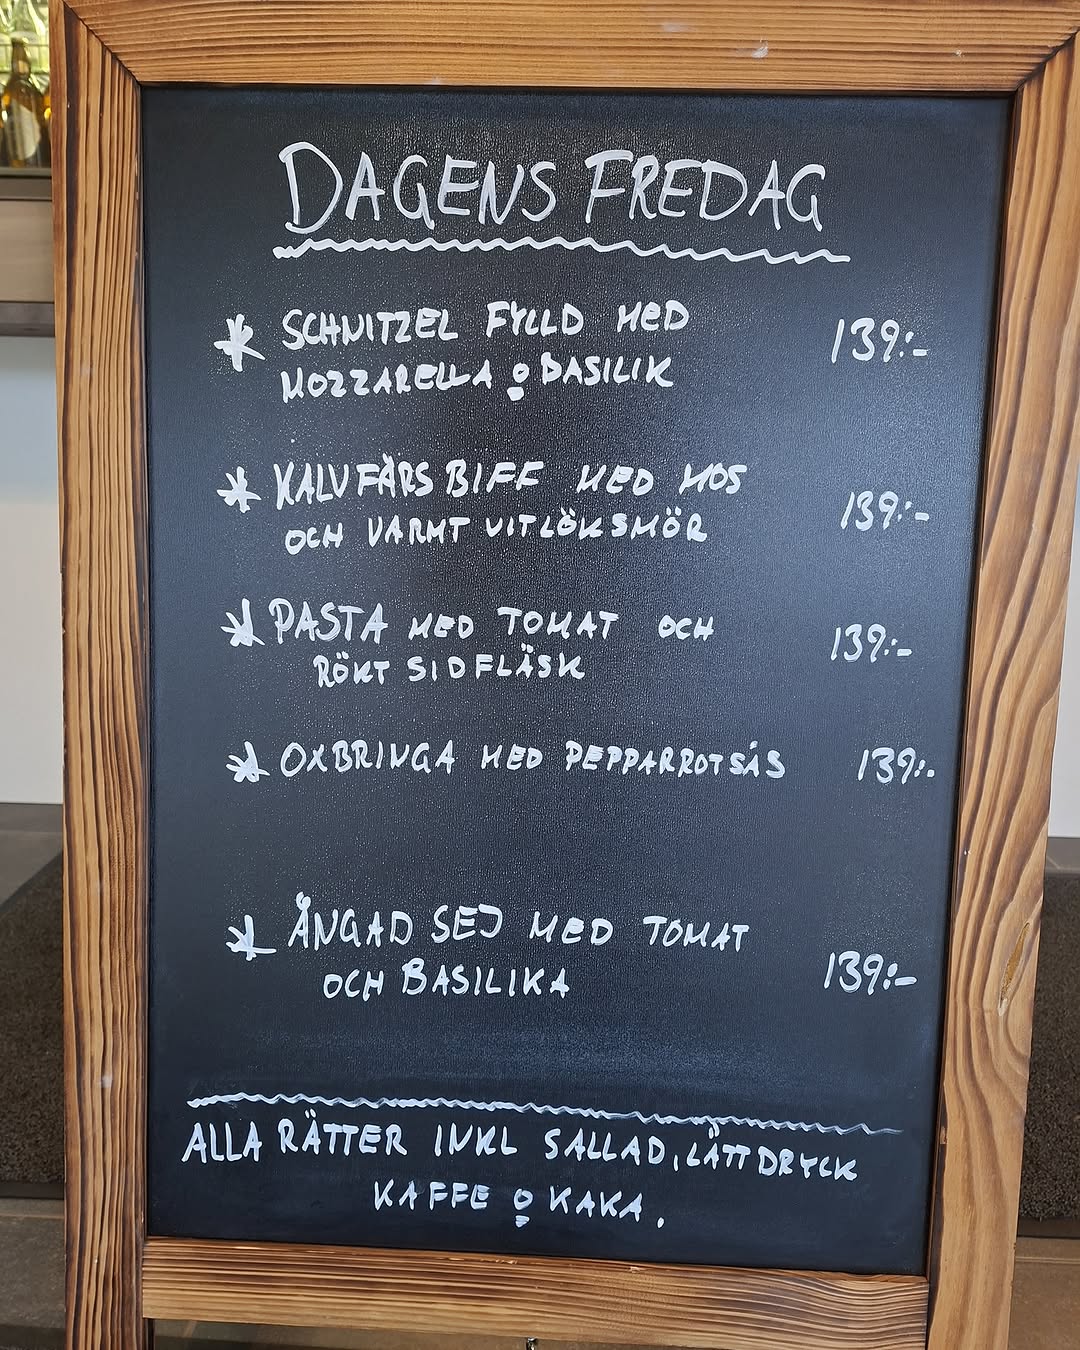 DAGENS FREDAG
* SCHNITZEL FYLLD MED
MOZZARELLA o BASILIK 139:-
* KALVFÄRS BIFF MED MOS
OCH VARMT VITLÖKSMÖR 139:-
* PASTA MED TOMAT OCH
RÖKT SIDFLÄSK 139:-
* OXBRINGA MED PEPPARROTSÅS 139:-
* ÅNGAD SEJ MED TOMAT
OCH BASILIKA 139:-
ALLA RÄTTER INKL SALLAD, LÄTTDRYCK
KAFFE o KAKA.